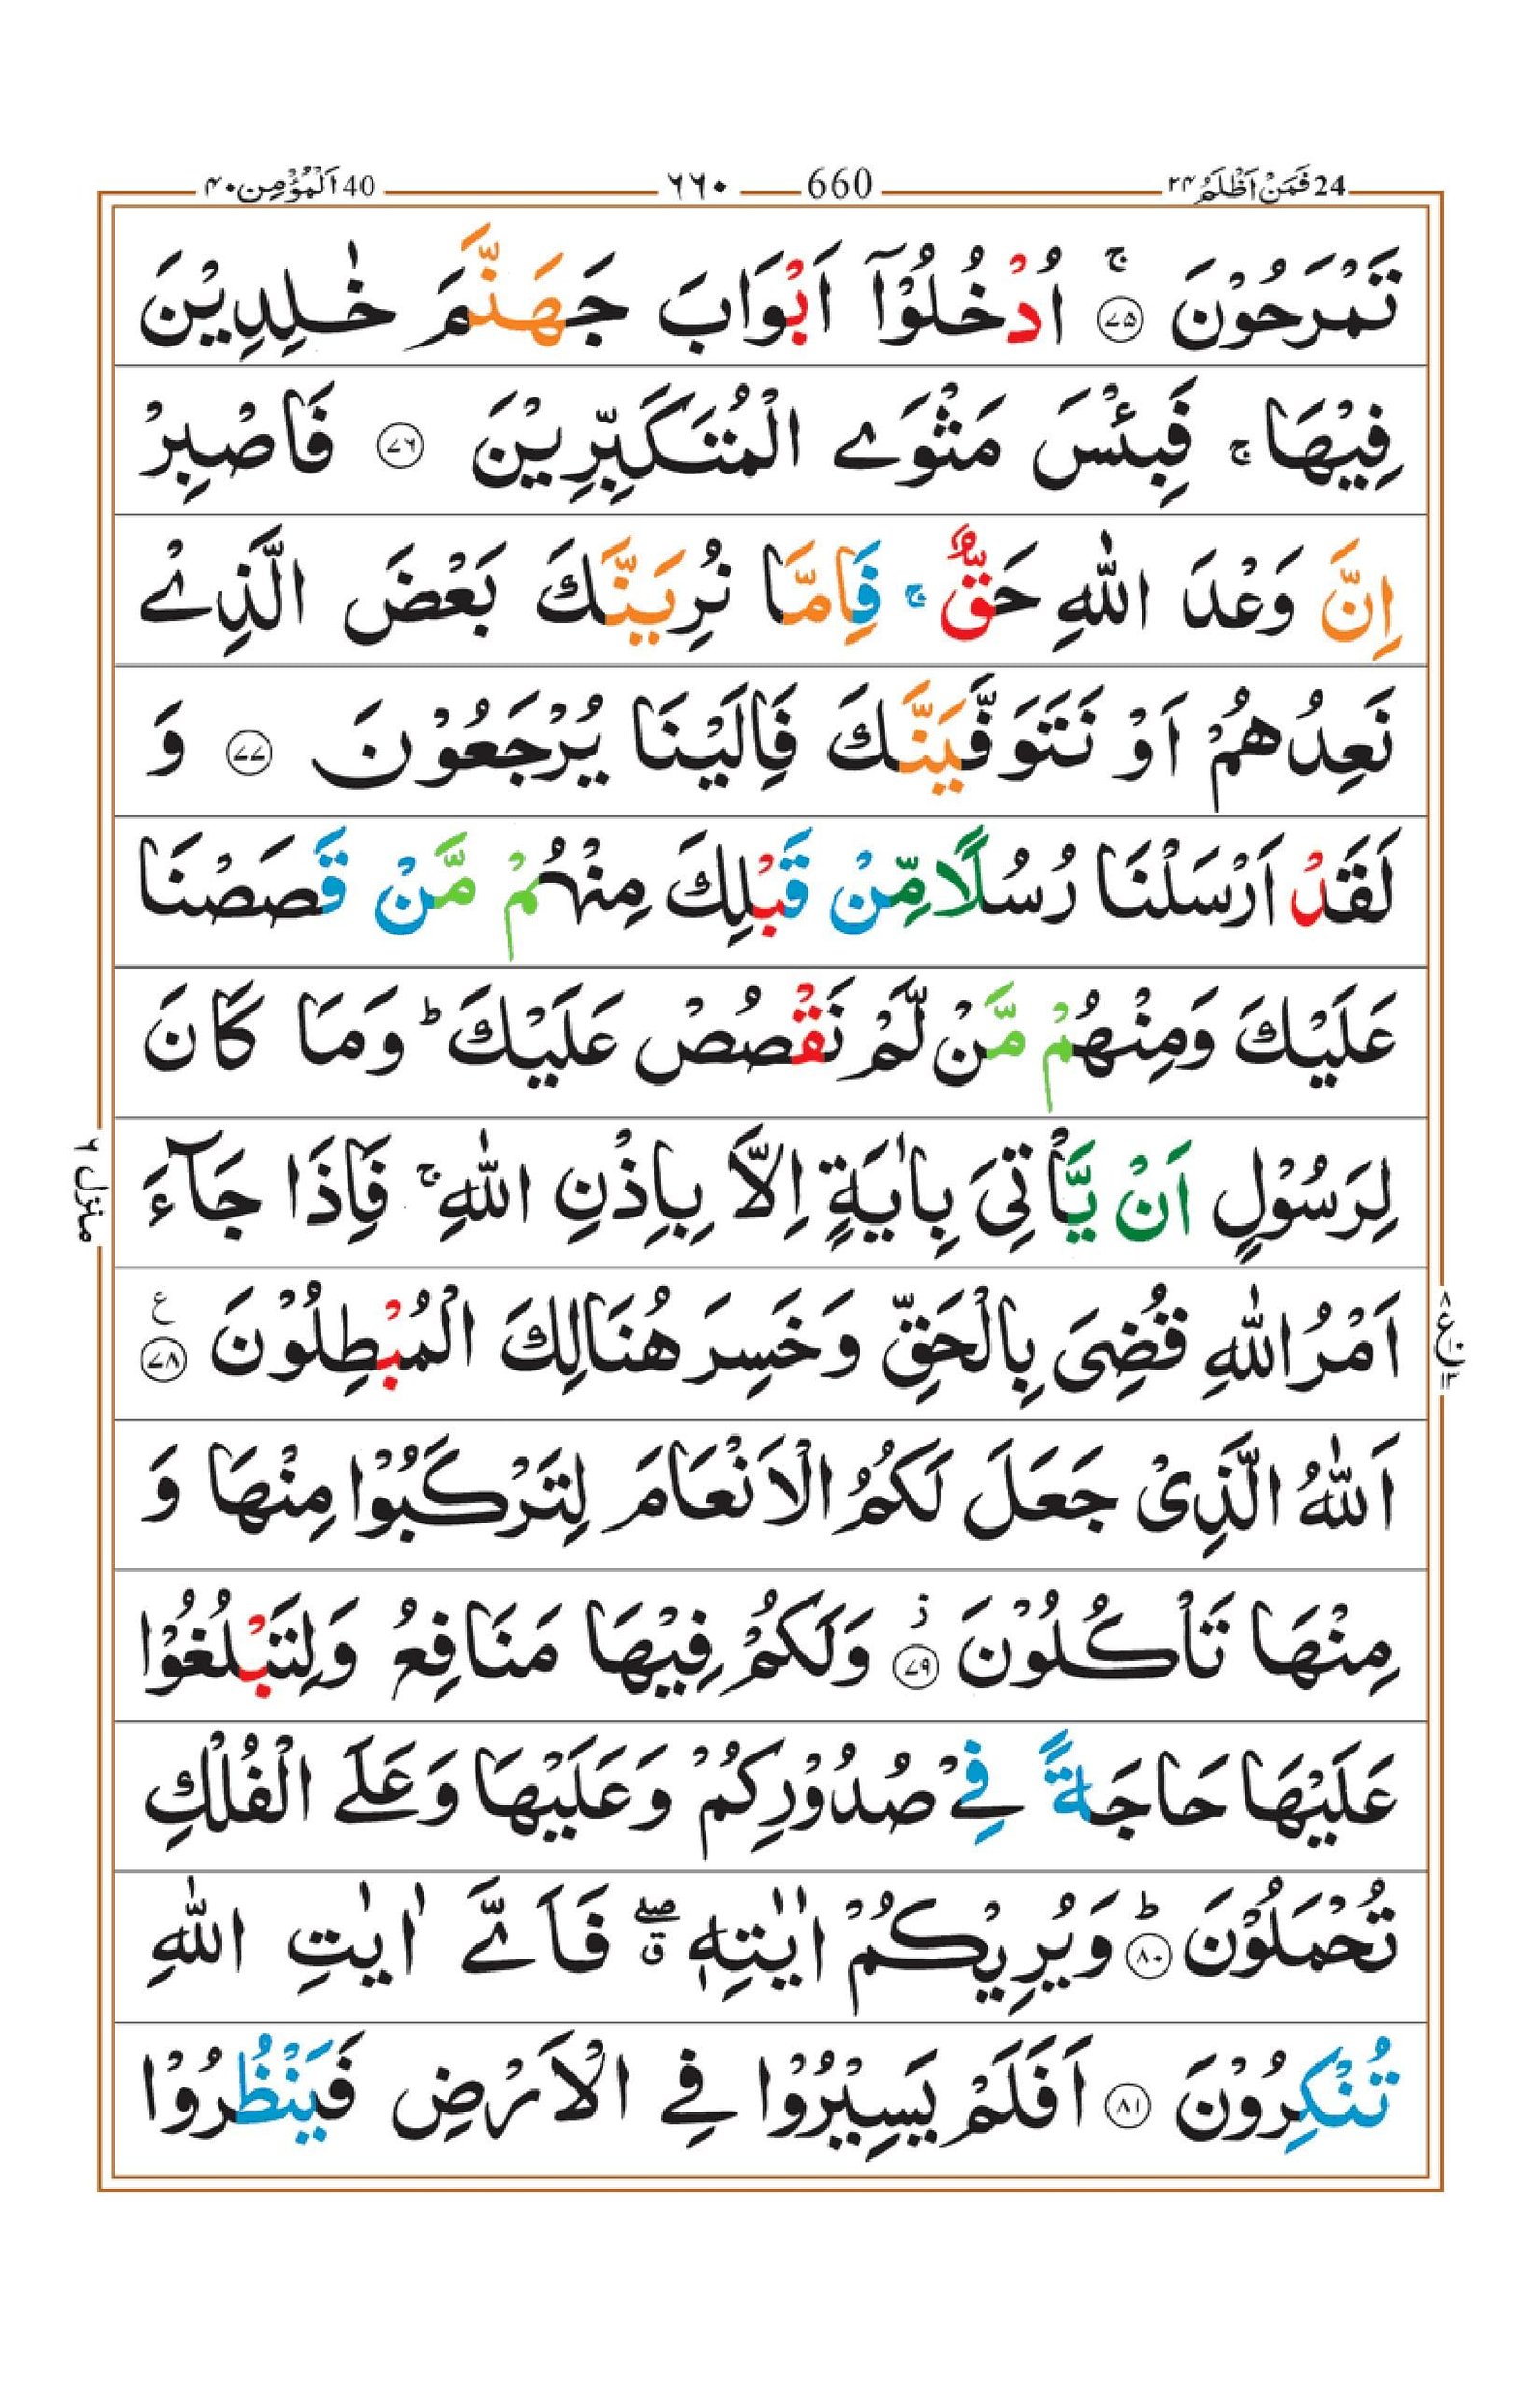 24 فَمَنْ اَظْلَمُ ۲۴
660 ٦٦٠
40 اَلْمُؤْمِن ۴۰
تَمْرَحُوْنَ ۚ ﴿۷۵﴾ اُدْخُلُوْۤا اَبْوَابَ جَهَنَّمَ خٰلِدِيْنَ
فِيْهَا ۚ فَبِئْسَ مَثْوَے الْمُتَكَبِّرِيْنَ ﴿۷۶﴾ فَاصْبِرْ
اِنَّ وَعْدَ اللّٰهِ حَقٌّ ۚ فَاِمَّا نُرِيَنَّكَ بَعْضَ الَّذِےْ
نَعِدُهُمْ اَوْ نَتَوَفَّيَنَّكَ فَاِلَيْنَا يُرْجَعُوْنَ ﴿۷۷﴾ وَ
لَقَدْ اَرْسَلْنَا رُسُلًا مِّنْ قَبْلِكَ مِنْهُمْ مَّنْ قَصَصْنَا
عَلَيْكَ وَمِنْهُمْ مَّنْ لَّمْ نَقْصُصْ عَلَيْكَ ؕ وَمَا كَانَ
لِرَسُوْلٍ اَنْ يَّاْتِىَ بِاٰيَةٍ اِلَّا بِاِذْنِ اللّٰهِ ۚ فَاِذَا جَآءَ
اَمْرُ اللّٰهِ قُضِىَ بِالْحَقِّ وَخَسِرَ هُنَالِكَ الْمُبْطِلُوْنَ ﴿۷۸﴾ ع
اَللّٰهُ الَّذِىْ جَعَلَ لَكُمُ الْاَنْعَامَ لِتَرْكَبُوْا مِنْهَا وَ
مِنْهَا تَاْكُلُوْنَ ز ﴿۷۹﴾ وَلَكُمْ فِيْهَا مَنَافِعُ وَلِتَبْلُغُوْا
عَلَيْهَا حَاجَةً فِےْ صُدُوْرِكُمْ وَعَلَيْهَا وَعَلَے الْفُلْكِ
تُحْمَلُوْنَ ؕ ﴿۸۰﴾ وَيُرِيْكُمْ اٰيٰتِهٖ ۖق فَاَےَّ اٰيٰتِ اللّٰهِ
تُنْكِرُوْنَ ﴿۸۱﴾ اَفَلَمْ يَسِيْرُوْا فِے الْاَرْضِ فَيَنْظُرُوْا
منزل ٦
۸ ع ۱۰ ۱۳